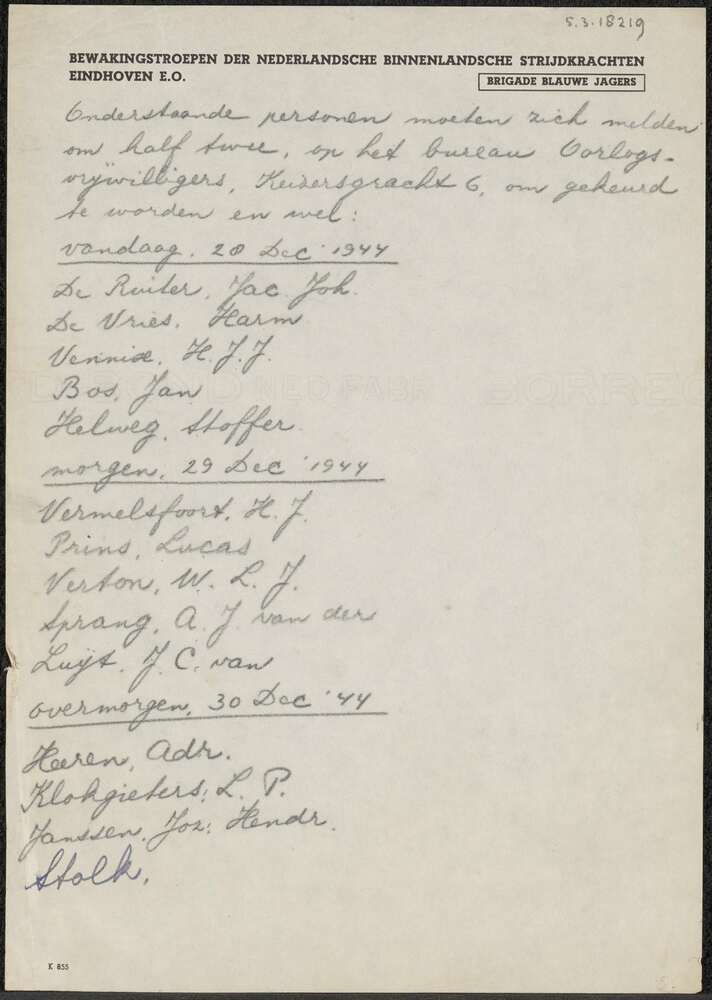 5.3.18219
BEWAKINGSTROEPEN DER NEDERLANDSCHE BINNENLANDSCHE STRIJDKRACHTEN
EINDHOVEN E.O.
BRIGADE BLAUWE JAGERS
Onderstaande personen moeten zich melden
om half twee, op het bureau Oorlogs-
vrijwilligers, Keizersgracht 6, om gekeurd
te worden en wel:
vandaag, 28 Dec '1944
De Ruiter, Jac. Joh.
De Vries, Harm
Vennix, H.J.J.
Bos, Jan
Helweg, Stoffer
morgen, 29 Dec '1944
Vermelsfoort, H.J.
Prins, Lucas
Verton, W. L. J.
Sprang, A. J. van der
Luijt, J. C. van
overmorgen, 30 Dec '44
Heeren, Adr.
Klokgieters, L. P.
Janssen, Joz. Hendr.
Stolk.
K 855